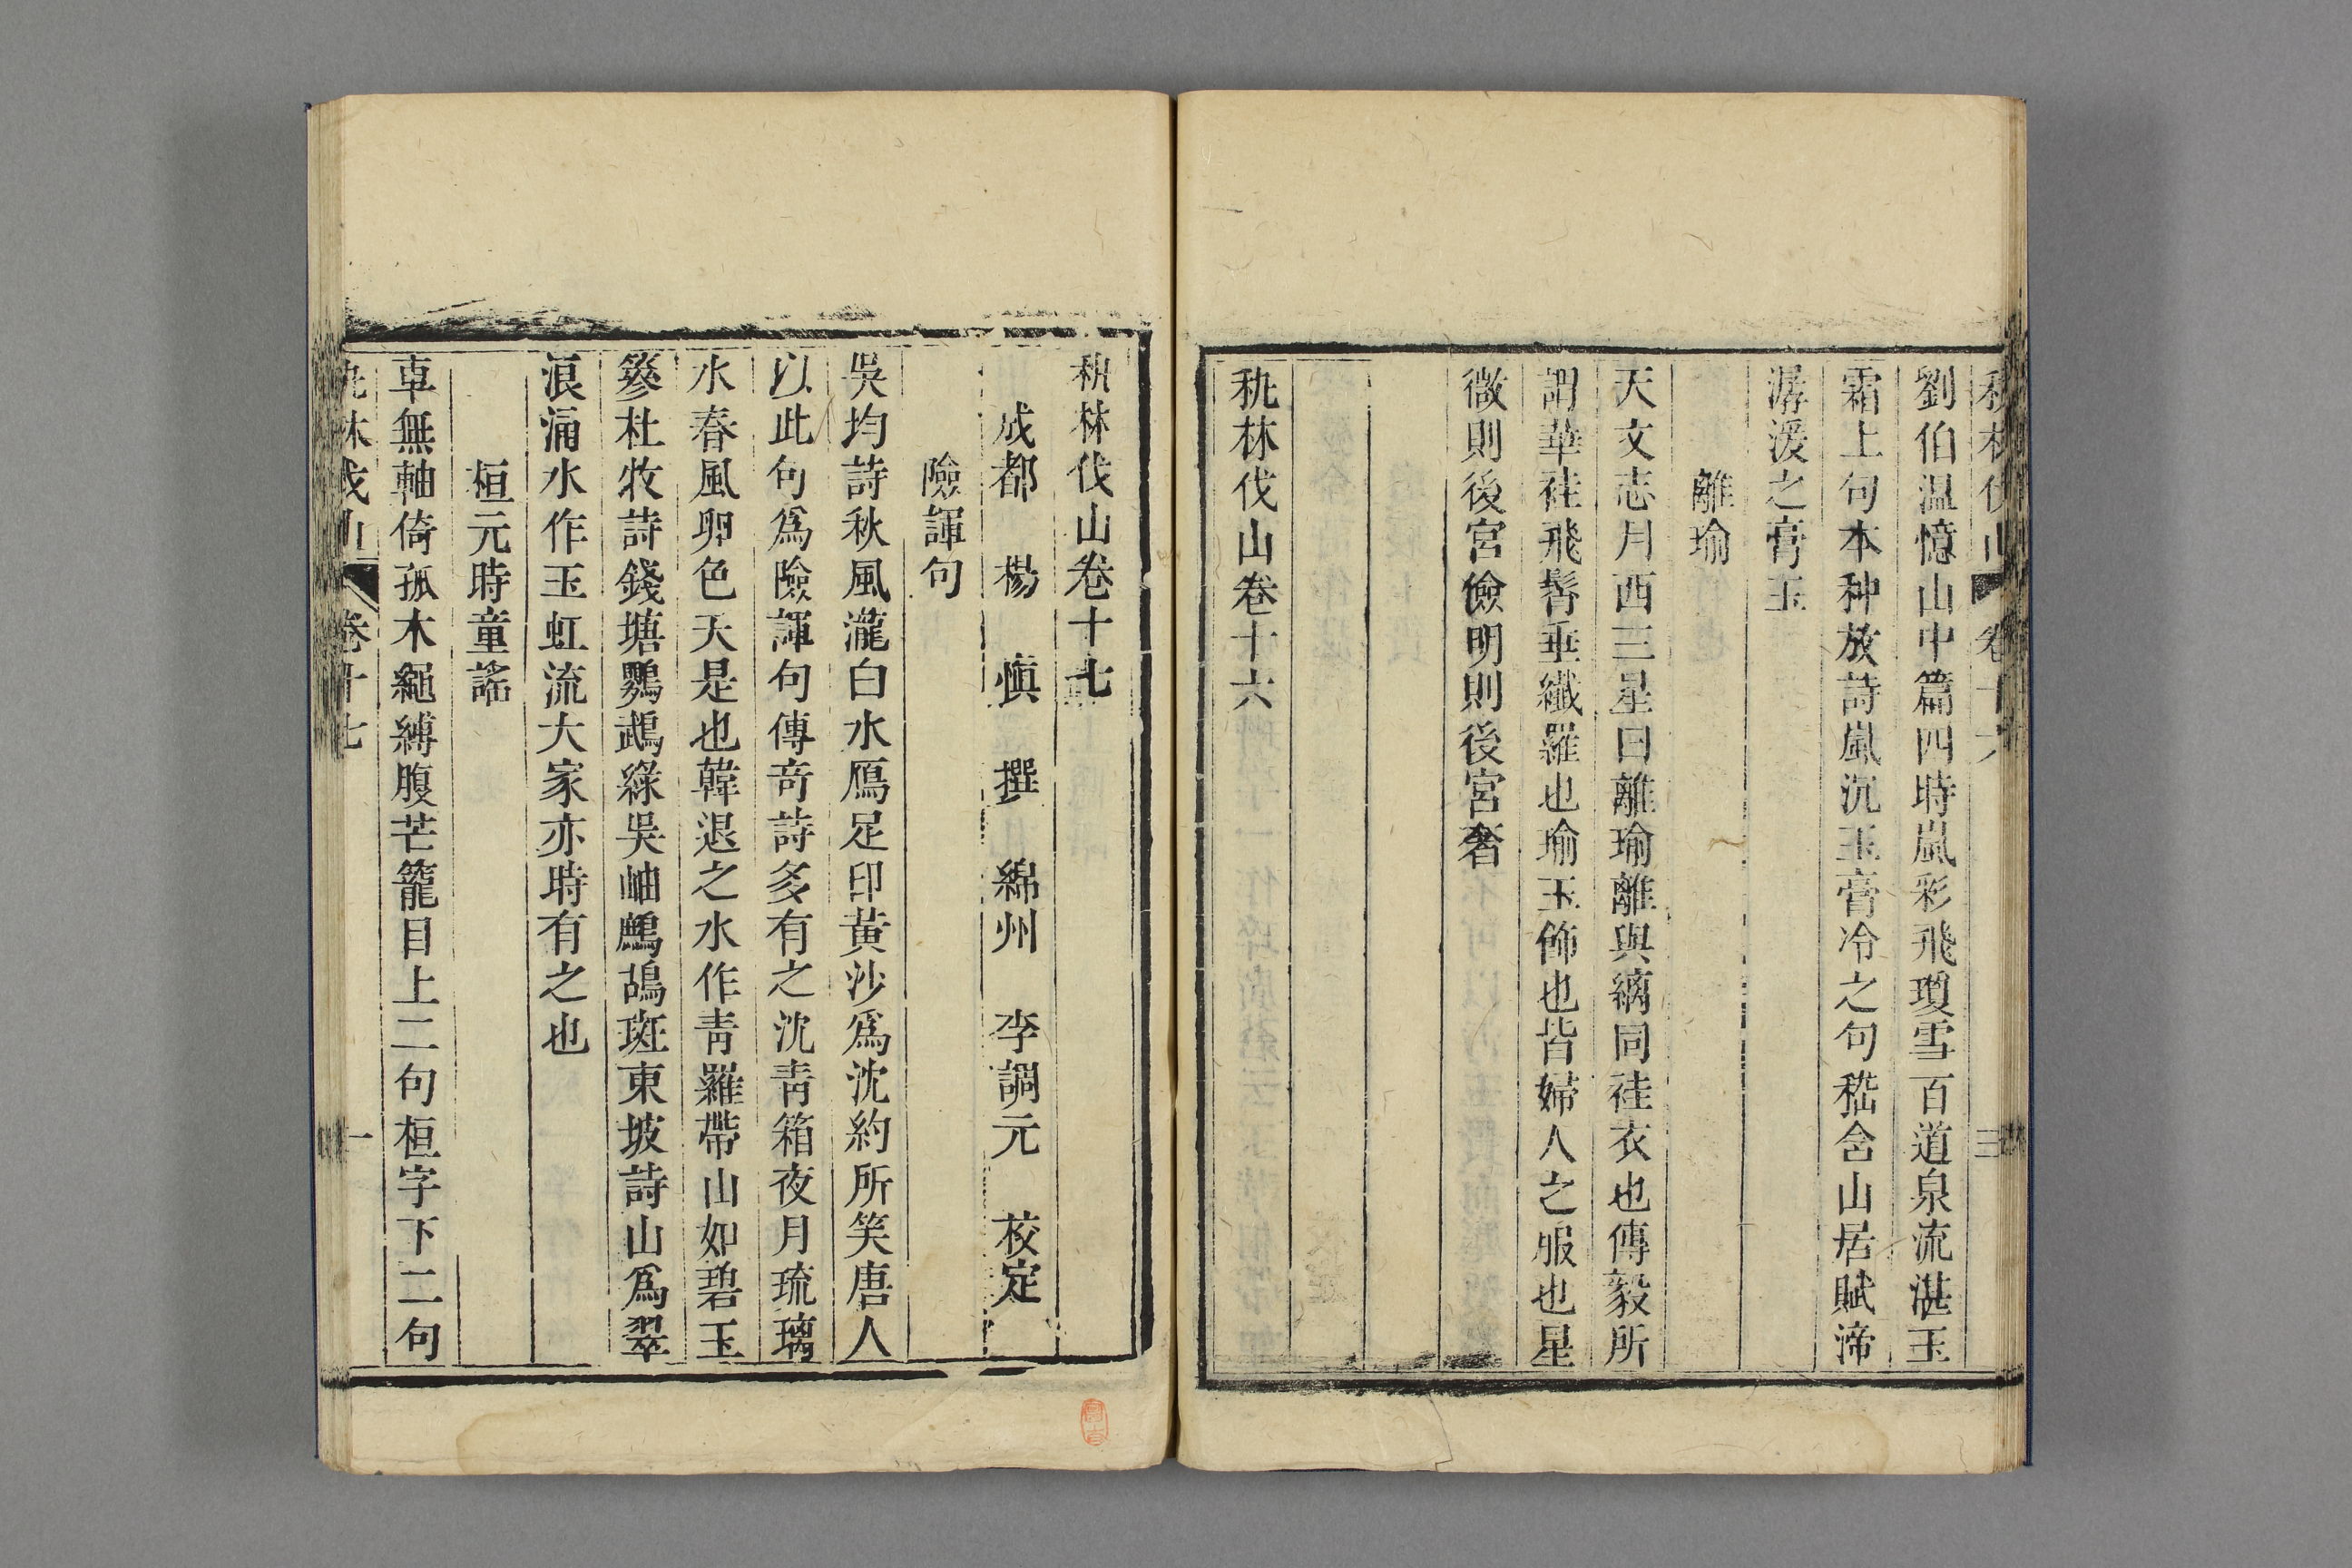 秇林伐山 卷十六 三
劉伯温憶山中篇四時嵐彩飛瓊雪百道泉流湛玉
霜上句本种放詩嵐沉玉膏冷之句嵇含山居賦渧
潺湲之膏玉
離瑜
天文志月西三星曰離瑜離與縭同袿衣也傅毅所
謂華袿飛髾垂纖羅也瑜玉飾也皆婦人之服也星
微則後宮儉明則後宮奢
秇林伐山卷十六
秇林伐山卷十七
成都 楊慎 撰 綿州 李調元 校定
險諢句
吳均詩秋風瀧白水鴈足印黃沙爲沈約所笑唐人
以此句爲險諢句傳竒詩多有之沈靑箱夜月琉璃
水春風卵色天是也韓退之水作靑羅帶山如碧玉
篸杜牧詩錢塘鸚鵡綠吳岫鷓鴣斑東坡詩山爲翠
浪涌水作玉虹流大家亦時有之也
桓元時童謠
車無軸倚孤木繩縛腹芒籠目上二句桓字下二句
秇林伐山 卷十七 一